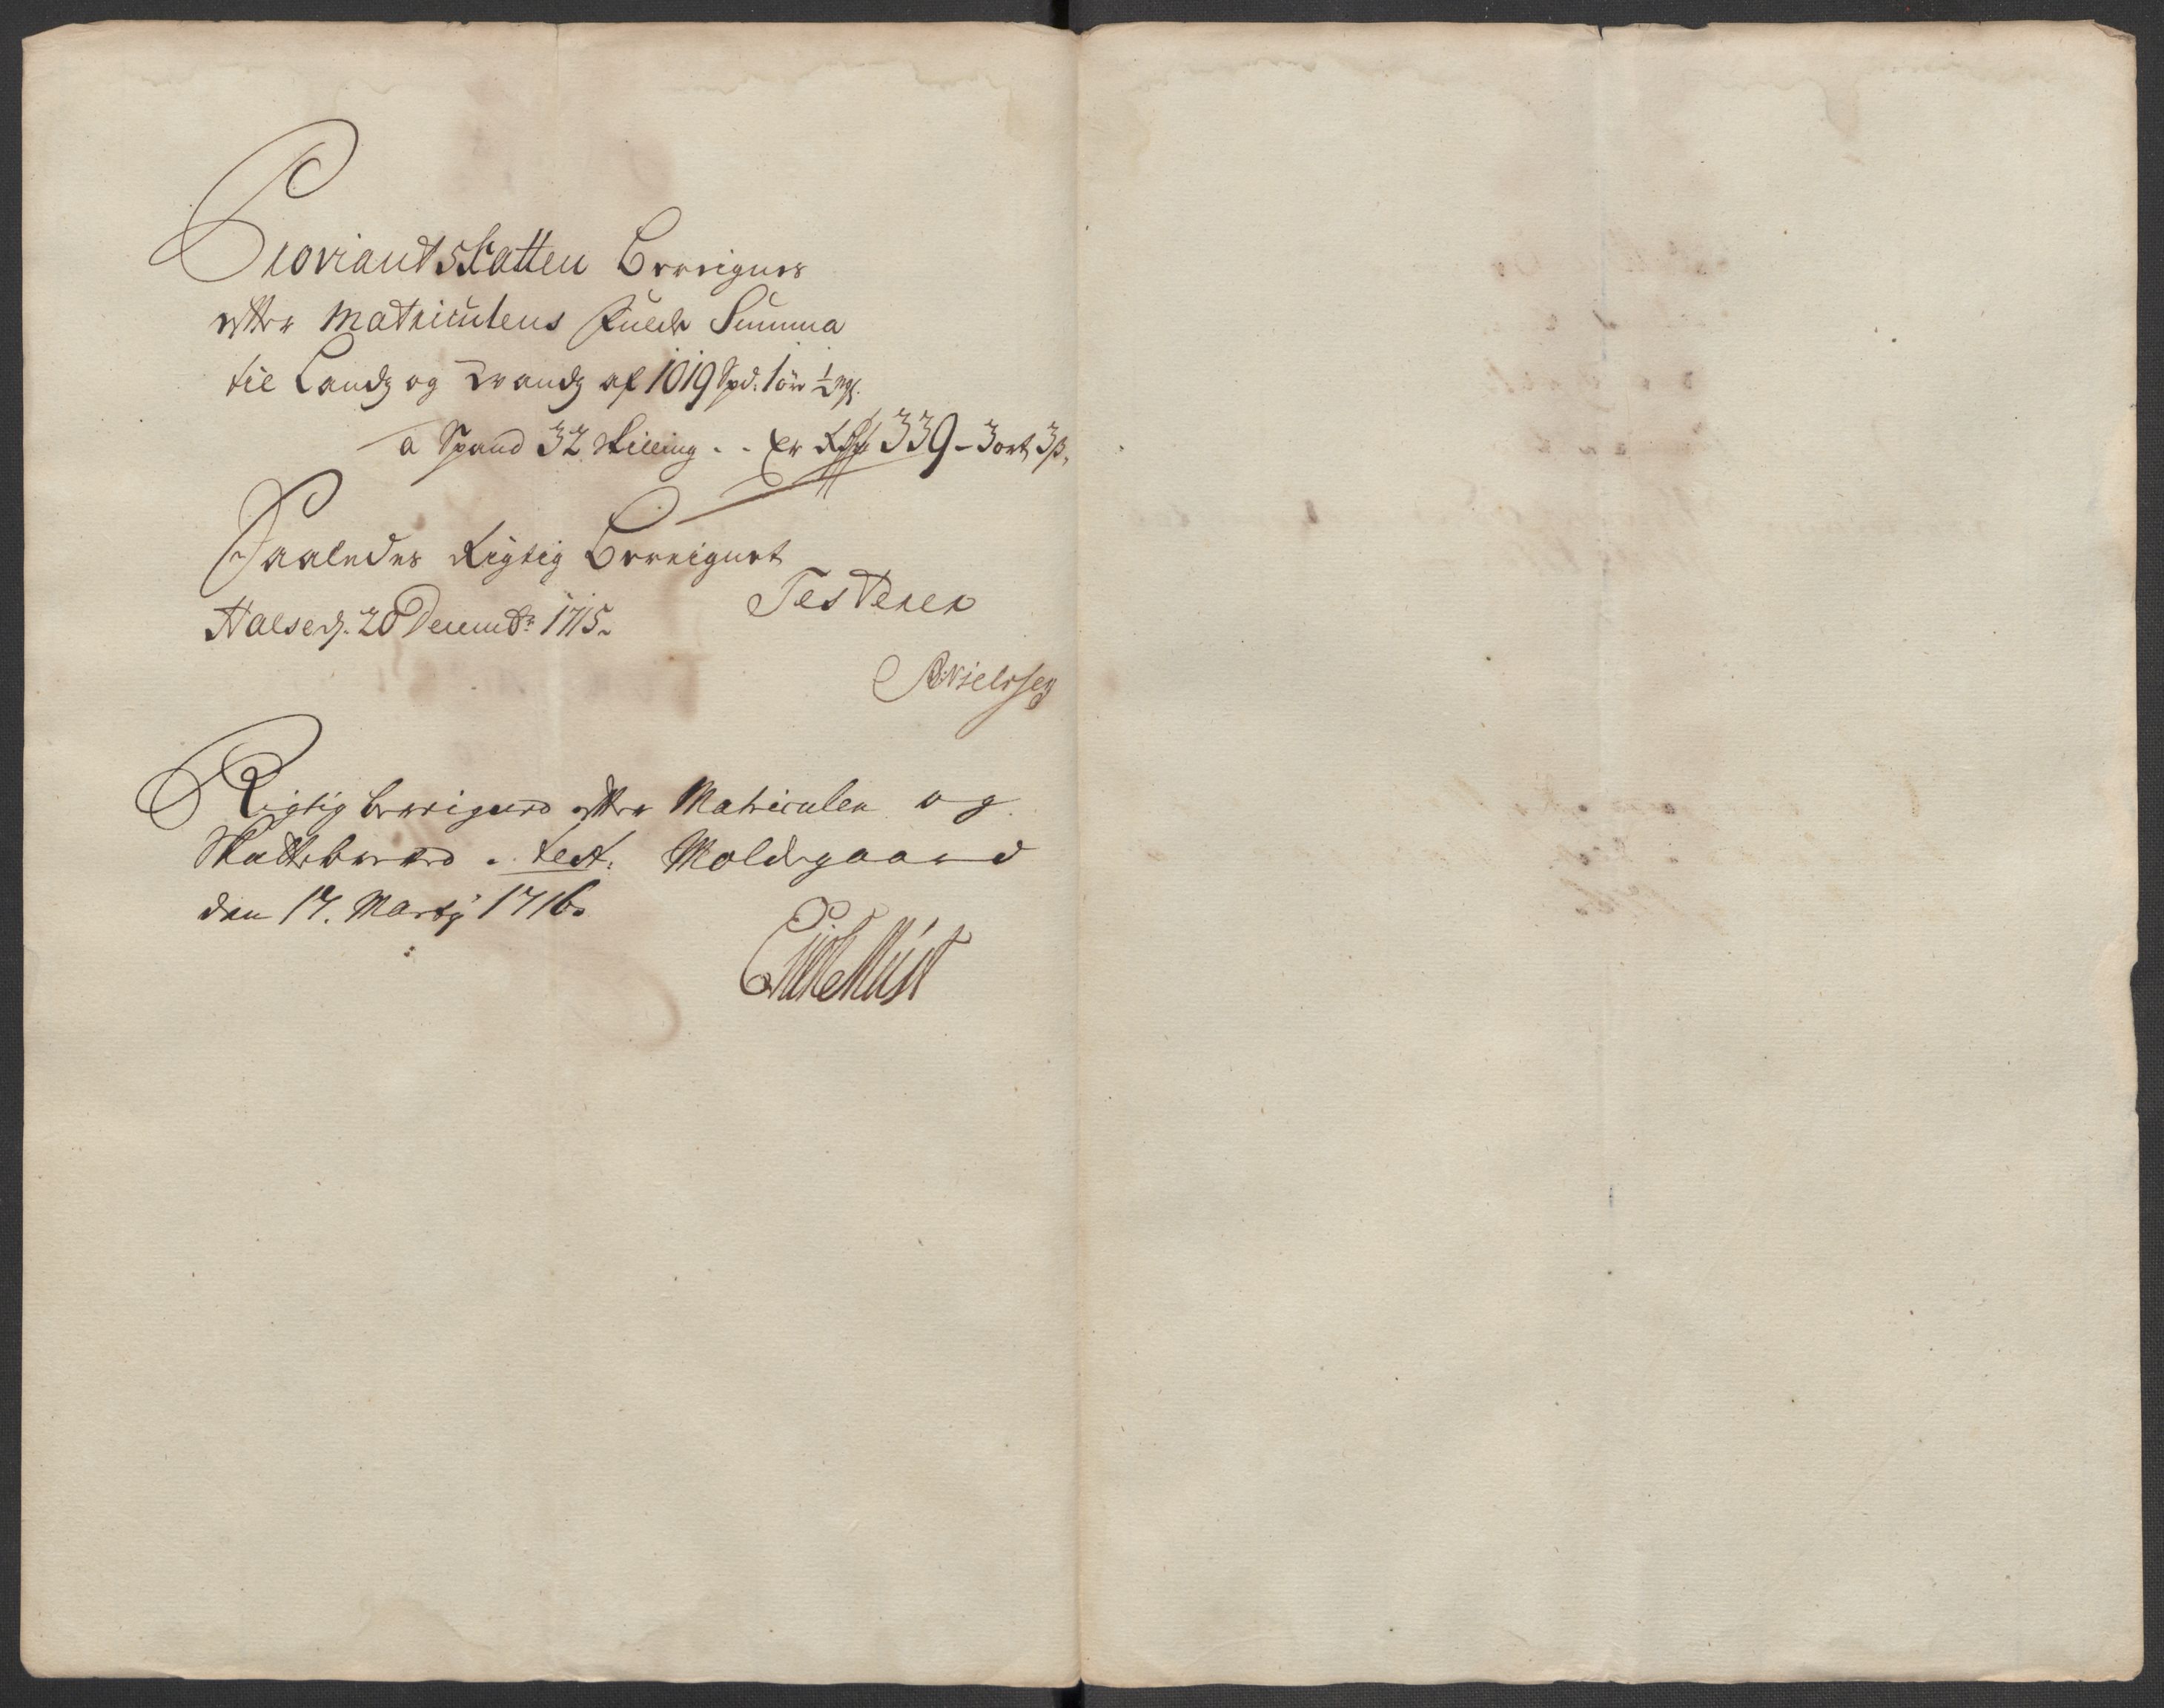 Proviant Skatten Bereignes
efter Matriculens fulde Summa
til Landz og Vandz af 1019 Spd: 1 ør ½ mk.
a Spand 32 skilling . . Er Rdr 339 - 3 ort 3 s,
Saaledes Rigtig Bereignet
Halse d. 20 Decembr: 1715.
Testerer
A: Nielssen
Rigtig bereigned efter Matriculen og
Skattebrevед . test: Moldegaard
den 17. Martÿ 1716.